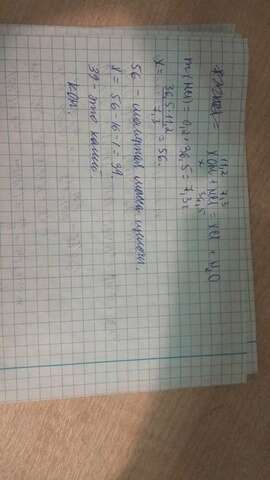 11,2 7,3
XOH + HCl = XCl + H₂O
x 36,5
m(HCl) = 0,2 * 36,5 = 7,3 г
x = 36,5 * 11,2 / 7,3 = 56.
56 - молярная масса щелочи.
X = 56 - 16 - 1 = 39.
39 - это калий
KOH.